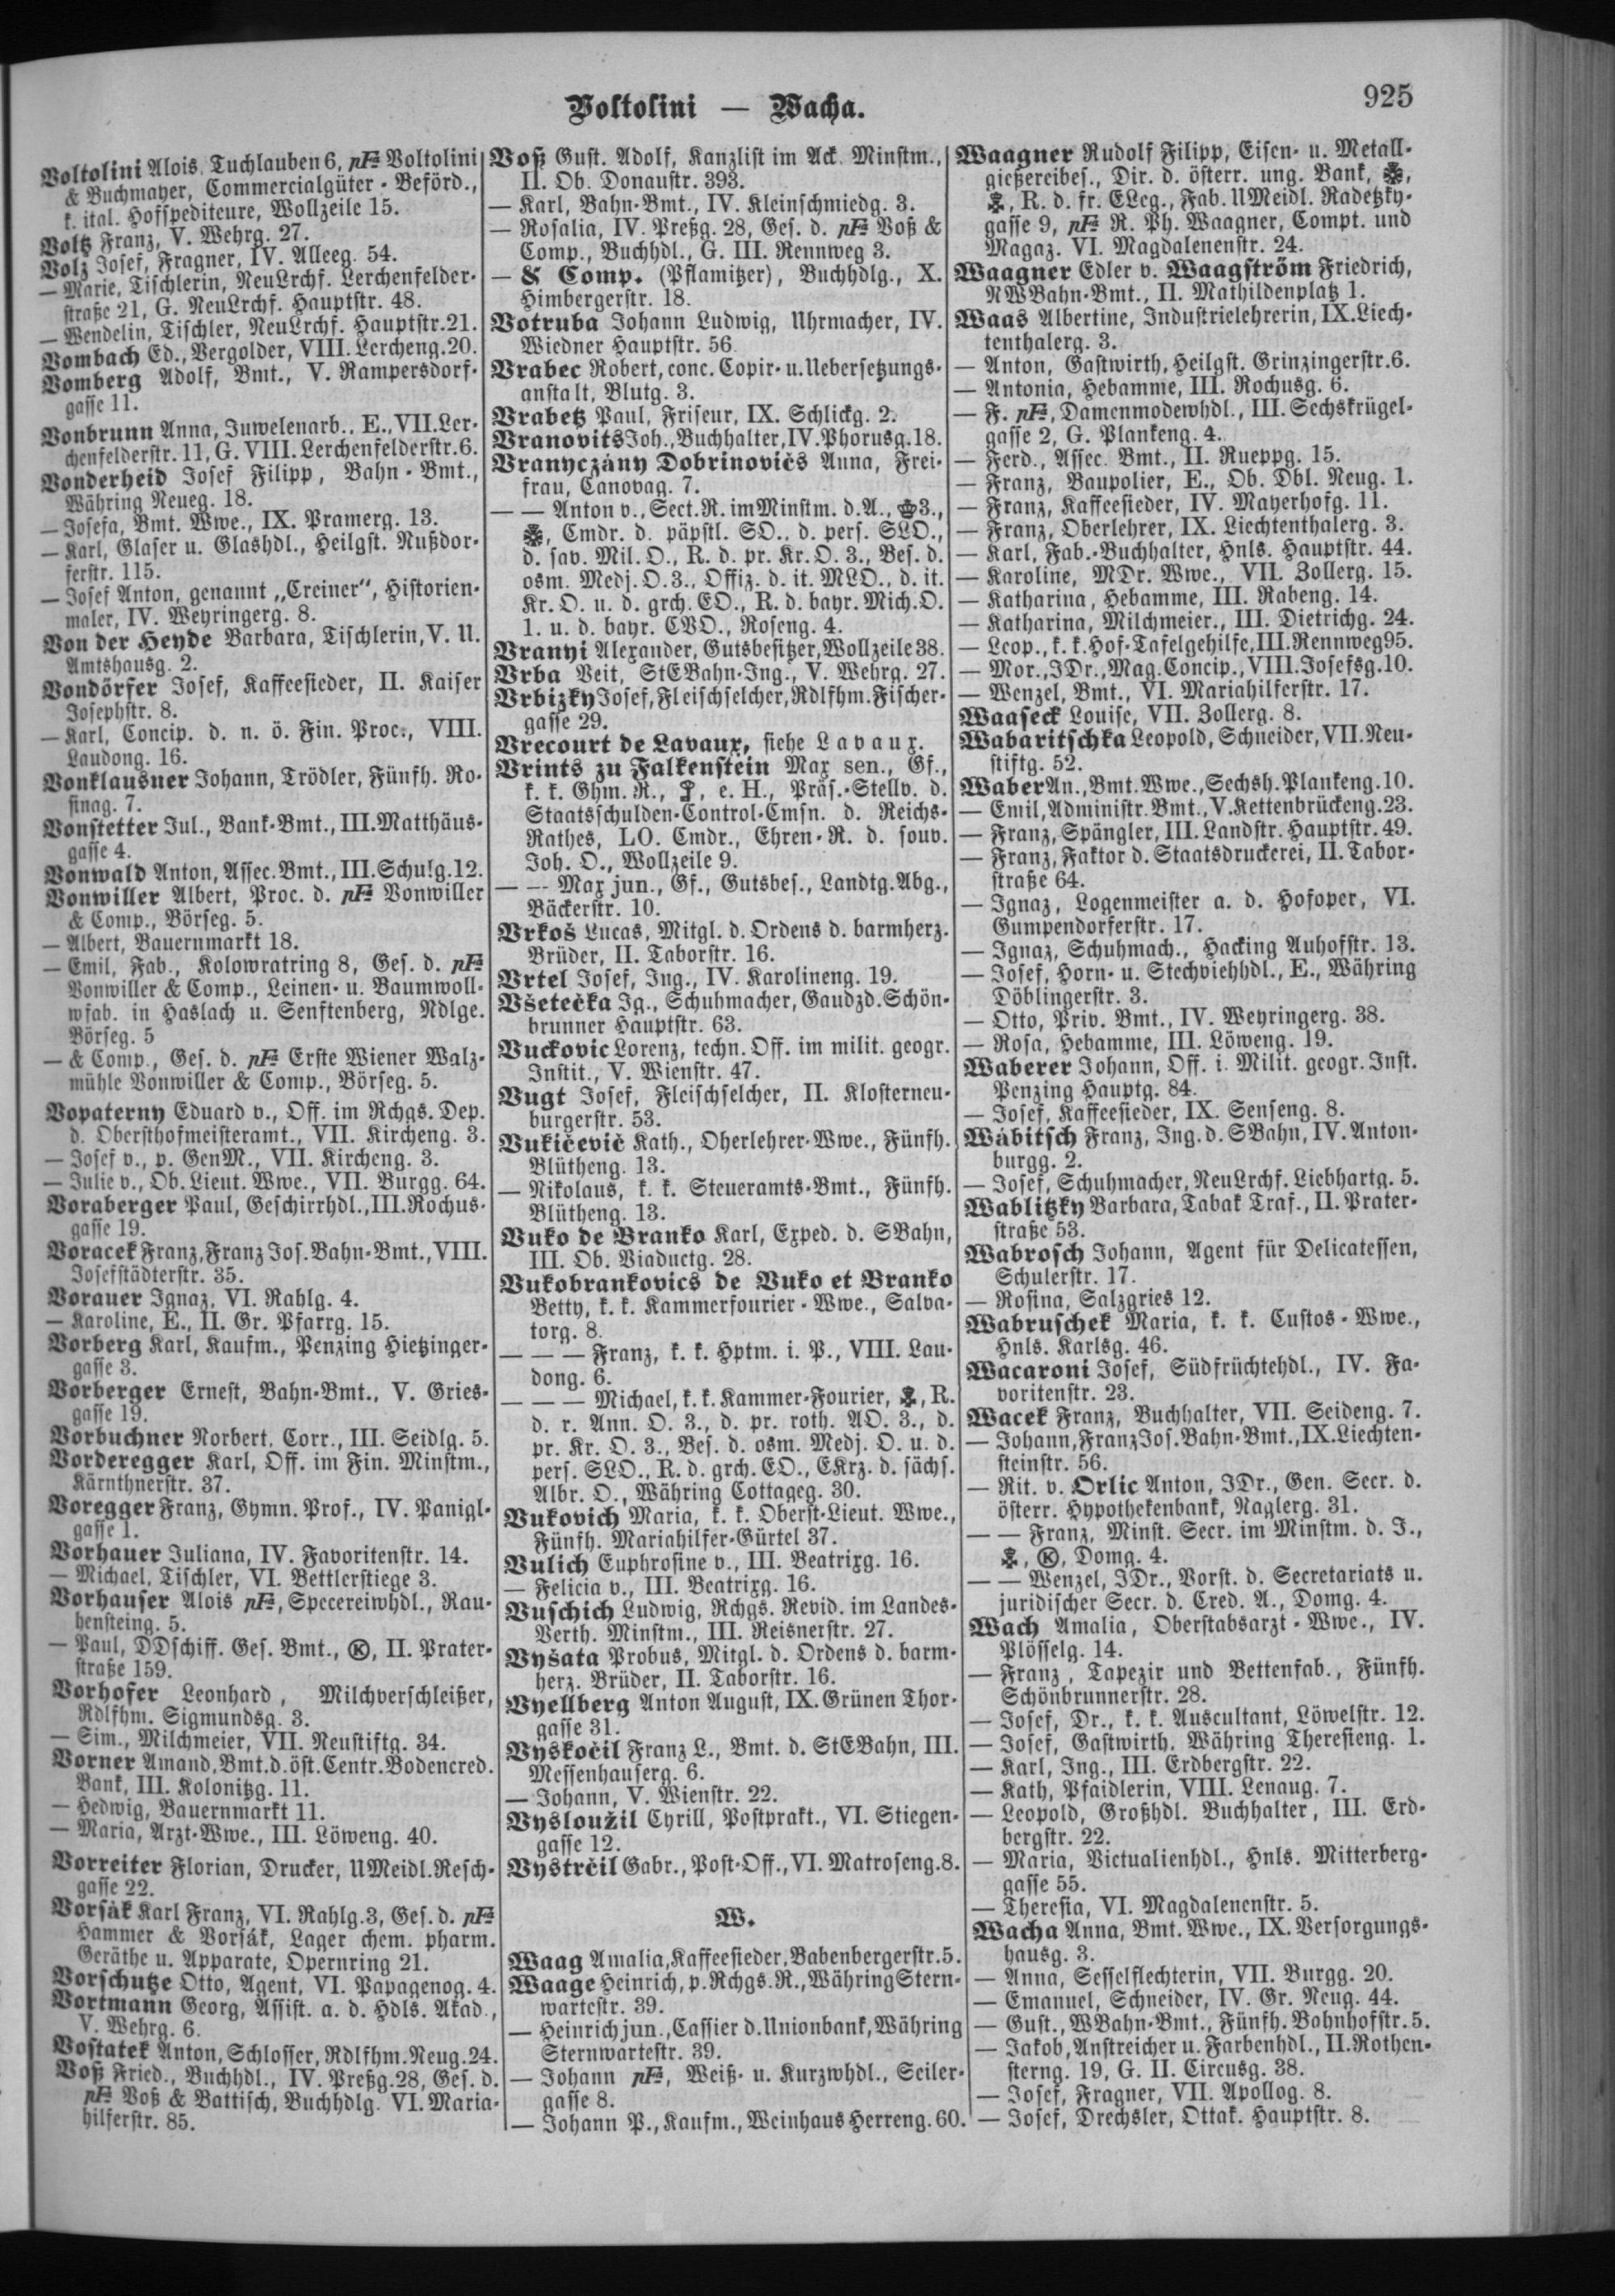 Voltolini — Wacha.
925
Voltolini Alois, Tuchlauben 6, pFa Voltolini
& Buchmayer, Commercialgüter-Beförd.,
k. ital. Hofspediteure, Wollzeile 15.
Voltz Franz, V. Wehrg. 27.
Volz Josef, Fragner, IV. Alleeg. 54.
— Marie, Tischlerin, NeuLrchf. Lerchenfelder-
straße 21, G. NeuLrchf. Hauptstr. 48.
— Wendelin, Tischler, NeuLrchf. Hauptstr. 21.
Vombach Ed., Vergolder, VIII. Lercheng. 20.
Vomberg Adolf, Bmt., V. Rampersdorf-
gasse 11.
Vonbrunn Anna, Juwelenarb., E., VII. Ler-
chenfelderstr. 11, G. VIII. Lerchenfelderstr. 6.
Vonderheid Josef Filipp, Bahn-Bmt.,
Währing Neueg. 18.
— Josefa, Bmt. Wwe., IX. Pramerg. 13.
— Karl, Glaser u. Glashdl., Heilgst. Nußdor-
ferstr. 115.
— Josef Anton, genannt „Creiner“, Historien-
maler, IV. Weyringerg. 8.
Von der Heyde Barbara, Tischlerin, V. U.
Amtshausg. 2.
Vondörfer Josef, Kaffeesieder, II. Kaiser
Josephstr. 8.
— Karl, Concip. d. n. ö. Fin. Proc., VIII.
Laudong. 16.
Vonklausner Johann, Trödler, Fünfh. Ro-
sinag. 7.
Vonstetter Jul., Bank-Bmt., III. Matthäus-
gasse 4.
Vonwald Anton, Assec. Bmt., III. Schulg. 12.
Vonwiller Albert, Proc. d. pFa Vonwiller
& Comp., Börseg. 5.
— Albert, Bauernmarkt 18.
— Emil, Fab., Kolowratring 8, Ges. d. pFa
Vonwiller & Comp., Leinen- u. Baumwoll-
wfab. in Haslach u. Senftenberg, Ndlge.
Börseg. 5
— & Comp., Ges. d. pFa Erste Wiener Walz-
mühle Vonwiller & Comp., Börseg. 5.
Vopaterny Eduard v., Off. im Rchgs. Dep.
d. Obersthofmeisteramt., VII. Kircheng. 3.
— Josef v., p. GenM., VII. Kircheng. 3.
— Julie v., Ob. Lieut. Wwe., VII. Burgg. 64.
Voraberger Paul, Geschirrhdl., III. Rochus-
gasse 19.
Voracek Franz, Franz Jos. Bahn-Bmt., VIII.
Josefstädterstr. 35.
Vorauer Ignaz, VI. Rahlg. 4.
— Karoline, E., II. Gr. Pfarrg. 15.
Vorberg Karl, Kaufm., Penzing Hietzinger-
gasse 3.
Vorberger Ernest, Bahn-Bmt., V. Gries-
gasse 19.
Vorbuchner Norbert, Corr., III. Seidlg. 5.
Vorderegger Karl, Off. im Fin. Minstm.,
Kärnthnerstr. 37.
Voregger Franz, Gymn. Prof., IV. Panigl-
gasse 1.
Vorhauer Juliana, IV. Favoritenstr. 14.
— Michael, Tischler, VI. Bettlerstiege 3.
Vorhauser Alois pFa, Specereiwhdl., Rau-
hensteing. 5.
— Paul, DDschiff. Ges. Bmt., Ⓚ, II. Prater-
straße 159.
Vorhofer Leonhard, Milchverschleißer,
Rdlfhm. Sigmundsg. 3.
— Sim., Milchmeier, VII. Neustiftg. 34.
Vorner Amand, Bmt. d. öst. Centr. Bodencred.
Bank, III. Kolonitzg. 11.
— Hedwig, Bauernmarkt 11.
— Maria, Arzt-Wwe., III. Löweng. 40.
Vorreiter Florian, Drucker, UMeidl. Resch-
gasse 22.
Vorsåk Karl Franz, VI. Rahlg. 3, Ges. d. pFa
Hammer & Vorsák, Lager chem. pharm.
Geräthe u. Apparate, Opernring 21.
Vorschutze Otto, Agent, VI. Papagenog. 4.
Vortmann Georg, Assist. a. d. Hdls. Akad.,
V. Wehrg. 6.
Vostatek Anton, Schlosser, Rdlfhm. Neug. 24.
Voß Fried., Buchhdl., IV. Preßg. 28, Ges. d.
pFa Voß & Battisch, Buchhdlg. VI. Maria-
hilferstr. 85.
Voß Gust. Adolf, Kanzlist im Ack. Minstm.,
II. Ob. Donaustr. 393.
— Karl, Bahn-Bmt., IV. Kleinschmiedg. 3.
— Rosalia, IV. Preßg. 28, Ges. d. pFa Voß &
Comp., Buchhdl., G. III. Rennweg 3.
— & Comp. (Pflamitzer), Buchhdlg., X.
Himbergerstr. 18.
Votruba Johann Ludwig, Uhrmacher, IV.
Wiedner Hauptstr. 56.
Vrabec Robert, conc. Copir- u. Uebersetzungs-
anstalt, Blutg. 3.
Vrabetz Paul, Friseur, IX. Schlickg. 2.
Vranovits Joh., Buchhalter, IV. Phorusg. 18.
Vranyczány Dobrinovičs Anna, Frei-
frau, Canovag. 7.
— — Anton v., Sect. R. im Minstm. d. A., 3.,
Cmdr. d. päpstl. SO., d. pers. SLO.,
d. sav. Mil. O., R. d. pr. Kr. O. 3., Bes. d.
osm. Medj. O. 3., Offiz. d. it. MLO., d. it.
Kr. O. u. d. grch. EO., R. d. bayr. Mich. O.
1. u. d. bayr. CVO., Roseng. 4.
Vranyi Alexander, Gutsbesitzer, Wollzeile 38.
Vrba Veit, StEBahn-Ing., V. Wehrg. 27.
Vrbizky Josef, Fleischselcher, Rdlfhm. Fischer-
gasse 29.
Vrecourt de Lavaux, siehe Lavaux.
Vrints zu Falkenstein Max sen., Gf.,
k. k. Ghm. R., e. H., Präs.-Stellv. d.
Staatsschulden-Control-Cmsn. d. Reichs-
Rathes, LO. Cmdr., Ehren-R. d. souv.
Joh. O., Wollzeile 9.
— — Max jun., Gf., Gutsbes., Landtg. Abg.,
Bäckerstr. 10.
Vrkoš Lucas, Mitgl. d. Ordens d. barmherz.
Brüder, II. Taborstr. 16.
Vrtel Josef, Ing., IV. Karolineng. 19.
Všetečka Ig., Schuhmacher, Gaudzd. Schön-
brunner Hauptstr. 63.
Vuckovic Lorenz, techn. Off. im milit. geogr.
Instit., V. Wienstr. 47.
Vugt Josef, Fleischselcher, II. Klosterneu-
burgerstr. 53.
Vukičevič Kath., Oherlehrer-Wwe., Fünfh.
Blütheng. 13.
— Nikolaus, k. k. Steueramts-Bmt., Fünfh.
Blütheng. 13.
Vuko de Branko Karl, Exped. d. SBahn,
III. Ob. Viaductg. 28.
Vukobrankovics de Vuko et Branko
Betty, k. k. Kammerfourier-Wwe., Salva-
torg. 8.
— — — Franz, k. k. Hptm. i. P., VIII. Lau-
dong. 6.
— — — Michael, k. k. Kammer-Fourier, R.
d. r. Ann. O. 3., d. pr. roth. AO. 3., d.
pr. Kr. O. 3., Bes. d. osm. Medj. O. u. d.
pers. SLO., R. d. grch. EO., EKrz. d. sächs.
Albr. O., Währing Cottageg. 30.
Vukovich Maria, k. k. Oberst-Lieut. Wwe.,
Fünfh. Mariahilfer-Gürtel 37.
Vulich Euphrosine v., III. Beatrixg. 16.
— Felicia v., III. Beatrixg. 16.
Vuschich Ludwig, Rchgs. Revid. im Landes-
Verth. Minstm., III. Reisnerstr. 27.
Vyšata Probus, Mitgl. d. Ordens d. barm-
herz. Brüder, II. Taborstr. 16.
Vyellberg Anton August, IX. Grünen Thor-
gasse 31.
Vyskočil Franz L., Bmt. d. StEBahn, III.
Messenhauserg. 6.
— Johann, V. Wienstr. 22.
Vysloužil Cyrill, Postprakt., VI. Stiegen-
gasse 12.
Vystrčil Gabr., Post-Off., VI. Matroseng. 8.
W.
Waag Amalia, Kaffeesieder, Babenbergerstr. 5.
Waage Heinrich, p. Rchgs. R., Währing Stern-
wartestr. 39.
— Heinrich jun., Cassier d. Unionbank, Währing
Sternwartestr. 39.
— Johann pFa, Weiß- u. Kurzwhdl., Seiler-
gasse 8.
— Johann P., Kaufm., Weinhaus Herreng. 60.
Waagner Rudolf Filipp, Eisen- u. Metall-
gießereibes., Dir. d. österr. ung. Bank,
R. d. fr. ELeg., Fab. UMeidl. Radetzky-
gasse 9, pFa R. Ph. Waagner, Compt. und
Magaz. VI. Magdalenenstr. 24.
Waagner Edler v. Waagström Friedrich,
NWBahn-Bmt., II. Mathildenplatz 1.
Waas Albertine, Industrielehrerin, IX. Liech-
tenthalerg. 3.
— Anton, Gastwirth, Heilgst. Grinzingerstr. 6.
— Antonia, Hebamme, III. Rochusg. 6.
— F. pFa, Damenmodewhdl., III. Sechskrügel-
gasse 2, G. Plankeng. 4.
— Ferd., Assec. Bmt., II. Rueppg. 15.
— Franz, Baupolier, E., Ob. Dbl. Neug. 1.
— Franz, Kaffeesieder, IV. Mayerhofg. 11.
— Franz, Oberlehrer, IX. Liechtenthalerg. 3.
— Karl, Fab.-Buchhalter, Hnls. Hauptstr. 44.
— Karoline, MDr. Wwe., VII. Zollerg. 15.
— Katharina, Hebamme, III. Rabeng. 14.
— Katharina, Milchmeier., III. Dietrichg. 24.
— Leop., k. k. Hof-Tafelgehilfe, III. Rennweg 95.
— Mor., JDr., Mag. Concip., VIII. Josefsg. 10.
— Wenzel, Bmt., VI. Mariahilferstr. 17.
Waaseck Louise, VII. Zollerg. 8.
Wabaritschka Leopold, Schneider, VII. Neu-
stiftg. 52.
Waber An., Bmt. Wwe., Sechsh. Plankeng. 10.
— Emil, Administr. Bmt., V. Kettenbrückeng. 23.
— Franz, Spängler, III. Landstr. Hauptstr. 49.
— Franz, Faktor d. Staatsdruckerei, II. Tabor-
straße 64.
— Ignaz, Logenmeister a. d. Hofoper, VI.
Gumpendorferstr. 17.
— Ignaz, Schuhmach., Hacking Auhofstr. 13.
— Josef, Horn- u. Stechviehhdl., E., Währing
Döblingerstr. 3.
— Otto, Priv. Bmt., IV. Weyringerg. 38.
— Rosa, Hebamme, III. Löweng. 19.
Waberer Johann, Off. i. Milit. geogr. Inst.
Penzing Hauptg. 84.
— Josef, Kaffeesieder, IX. Senseng. 8.
Wábitsch Franz, Ing. d. SBahn, IV. Anton-
burgg. 2.
— Josef, Schuhmacher, NeuLrchf. Liebhartg. 5.
Wablitzky Barbara, Tabak Traf., II. Prater-
straße 53.
Wabrosch Johann, Agent für Delicatessen,
Schulerstr. 17.
— Rosina, Salzgries 12.
Wabruschek Maria, k. k. Custos-Wwe.,
Hnls. Karlsg. 46.
Wacaroni Josef, Südfrüchtehdl., IV. Fa-
voritenstr. 23.
Wacek Franz, Buchhalter, VII. Seideng. 7.
— Johann, Franz Jos. Bahn-Bmt., IX. Liechten-
steinstr. 56.
— Rit. v. Orlic Anton, JDr., Gen. Secr. d.
österr. Hypothekenbank, Naglerg. 31.
— — Franz, Minst. Secr. im Minstm. d. J.,
Ⓚ, Domg. 4.
— — Wenzel, JDr., Vorst. d. Secretariats u.
juridischer Secr. d. Cred. A., Domg. 4.
Wach Amalia, Oberstabsarzt-Wwe., IV.
Plösselg. 14.
— Franz, Tapezir und Bettenfab., Fünfh.
Schönbrunnerstr. 28.
— Josef, Dr., k. k. Auscultant, Löwelstr. 12.
— Josef, Gastwirth, Währing Theresieng. 1.
— Karl, Ing., III. Erdbergstr. 22.
— Kath, Pfaidlerin, VIII. Lenaug. 7.
— Leopold, Großhdl. Buchhalter, III. Erd-
bergstr. 22.
— Maria, Victualienhdl., Hnls. Mitterberg-
gasse 55.
— Theresia, VI. Magdalenenstr. 5.
Wacha Anna, Bmt. Wwe., IX. Versorgungs-
hausg. 3.
— Anna, Sesselflechterin, VII. Burgg. 20.
— Emanuel, Schneider, IV. Gr. Neug. 44.
— Gust., WBahn-Bmt., Fünfh. Bahnhofstr. 5.
— Jakob, Anstreicher u. Farbenhdl., II. Rothen-
sterng. 19, G. II. Circusg. 38.
— Josef, Fragner, VII. Apollog. 8.
— Josef, Drechsler, Ottak. Hauptstr. 8.